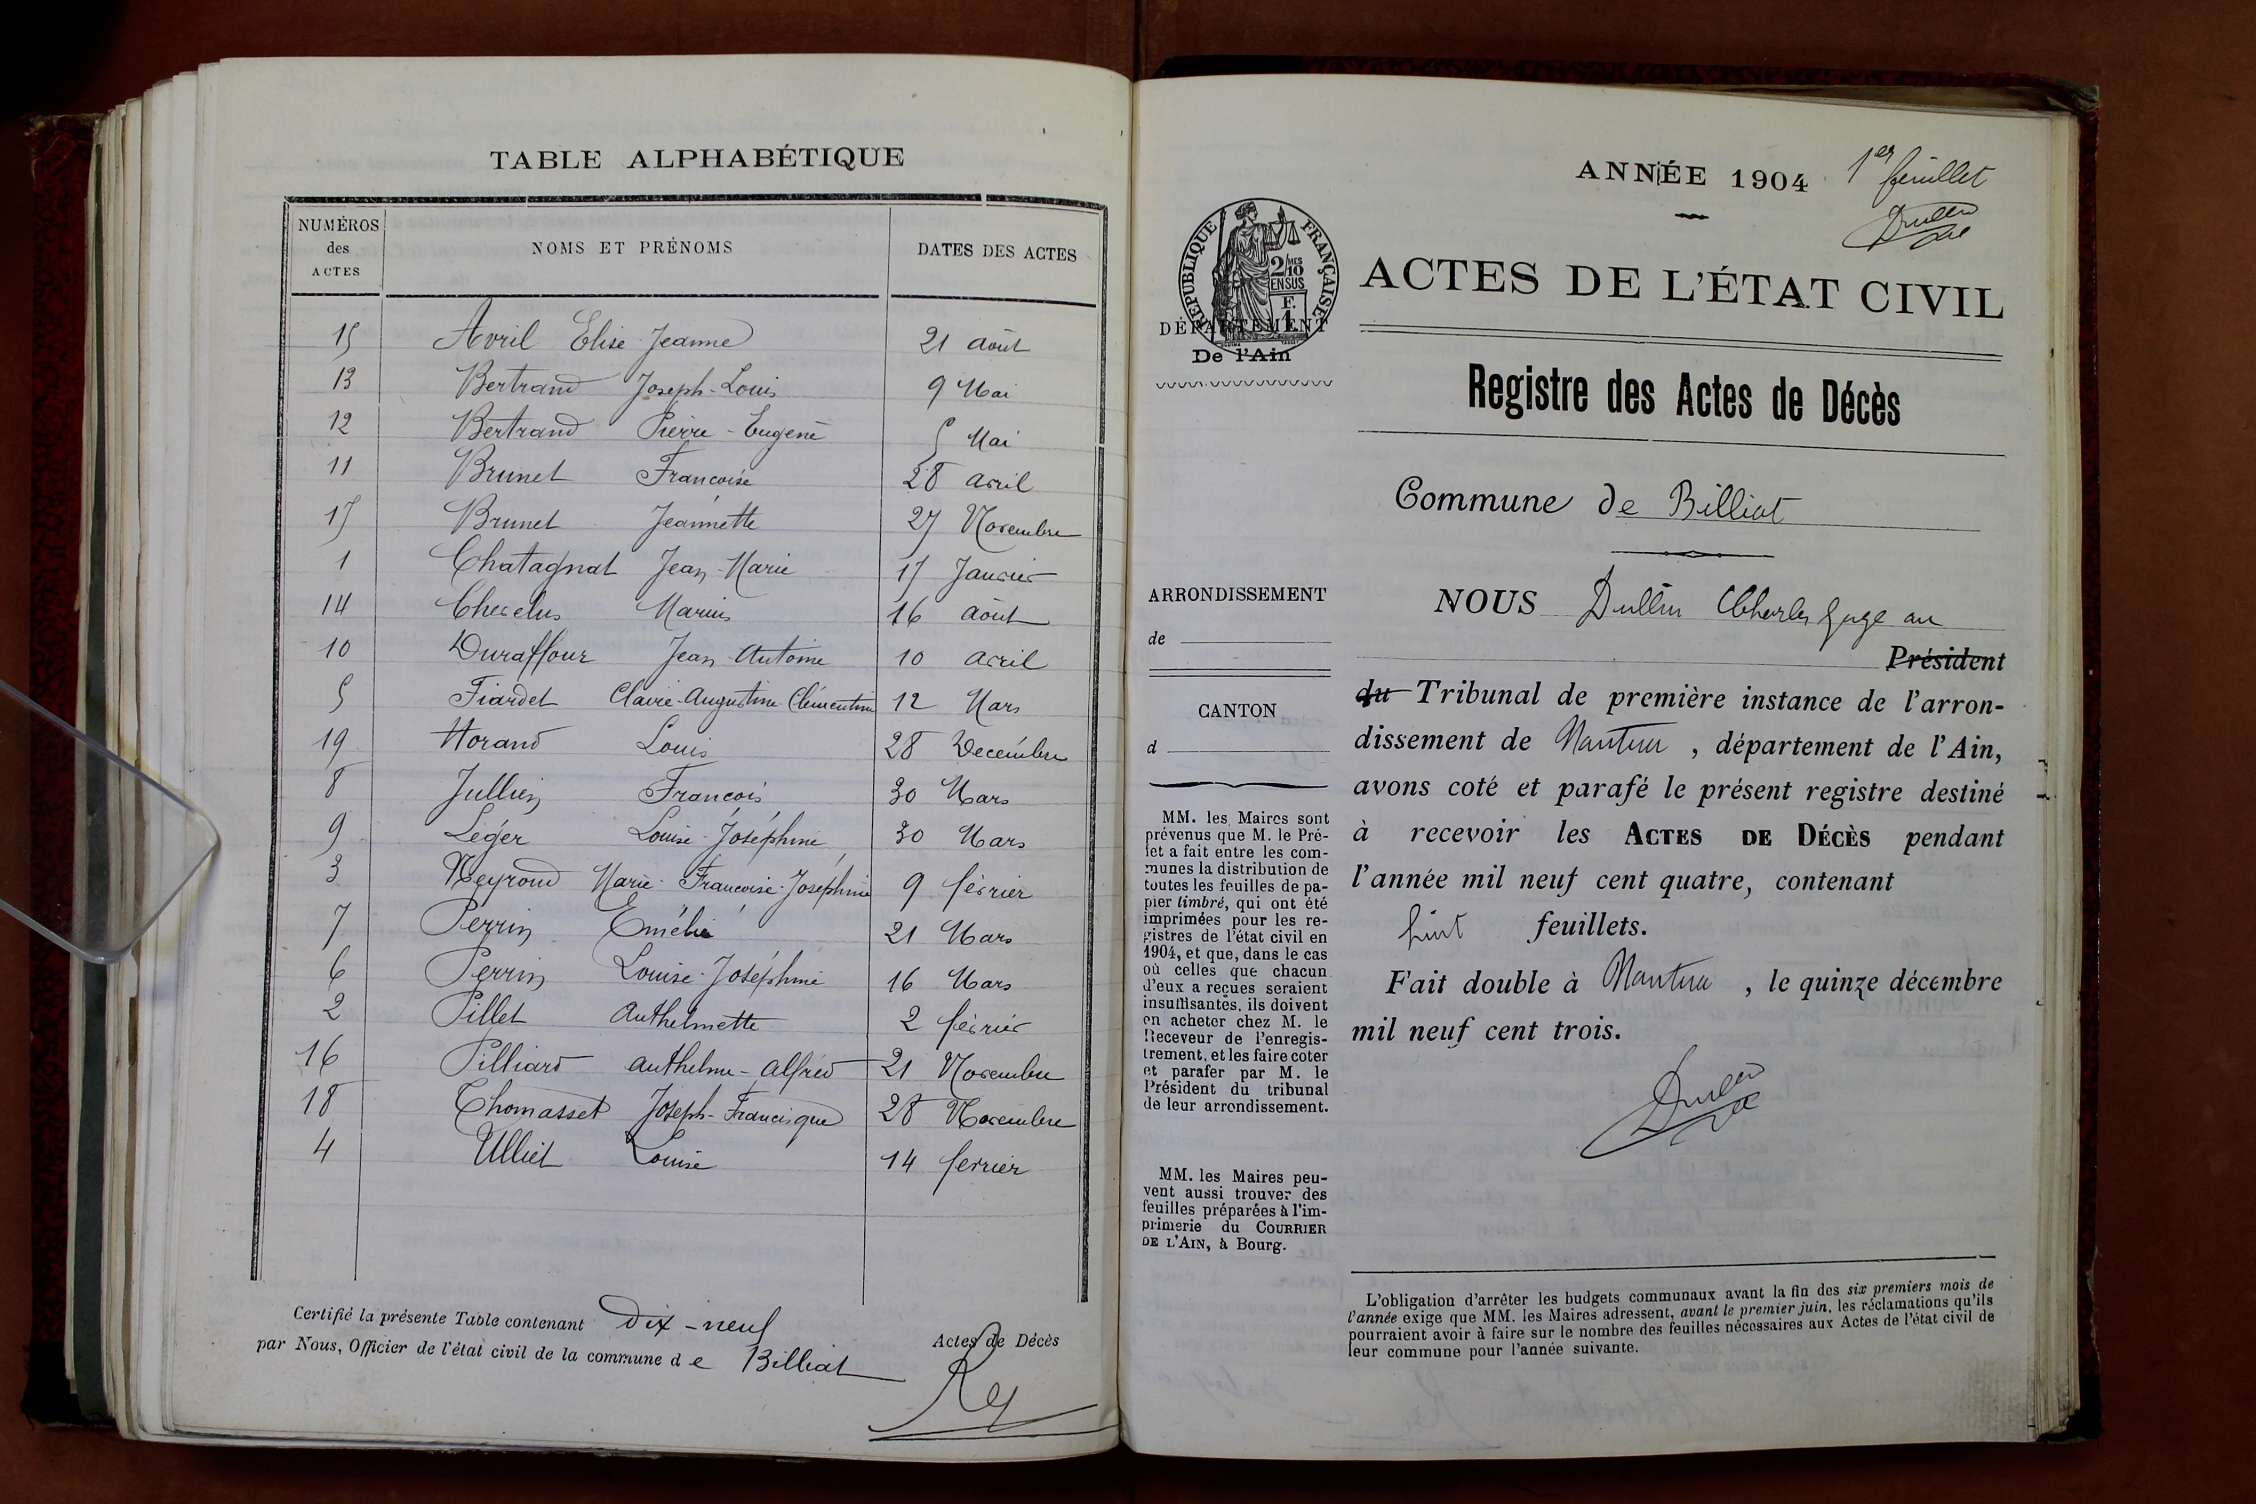 TABLE ALPHABÉTIQUE
NUMÉROS des ACTES
NOMS ET PRÉNOMS
DATES DES ACTES
15 Avril Elise Jeanne 21 août
13 Bertrand Joseph-Louis 9 Mai
12 Bertrand Pierre-Eugène 5 Mai
11 Brunet Francoise 28 avril
17 Brunet Jeannette 27 Novembre
1 Chatagnat Jean-Marie 17 Janvier
14 Chevelus Marius 16 août
10 Duraffour Jean Antoine 10 avril
5 Fiardet Claire-Augustine Clémentine 12 Mars
19 Morand Louis 28 Decembre
8 Jullien François 30 Mars
9 Léger Louise-Joséphine 30 Mars
3 Neyroud Marie-Francoise-Joséphine 9 février
7 Perrin Emélie 21 Mars
6 Perrin Louise-Joséphine 16 Mars
2 Pillet Anthelmette 2 février
16 Pilliard anthelme-alfred 21 Novembre
18 Thomasset Joseph-Francisque 28 Novembre
4 Ulliet Louise 14 fevrier
Certifié la présente Table contenant Dix-neuf Actes de Décès
par Nous, Officier de l'état civil de la commune de Billiat
Rey
ANNÉE 1904
1er feuillet
RÉPUBLIQUE FRANÇAISE
2/10 MES
EN SUS
F.
1
DÉPARTEMENT
De l'Ain
ACTES DE L'ÉTAT CIVIL
Registre des Actes de Décès
Commune de Billiat
ARRONDISSEMENT
de
CANTON
d
MM. les Maires sont
prévenus que M. le Pré-
fet a fait entre les com-
munes la distribution de
toutes les feuilles de pa-
pier timbré, qui ont été
imprimées pour les re-
gistres de l'état civil en
1904, et que, dans le cas
où celles que chacun
d'eux a reçues seraient
insuffisantes, ils doivent
en acheter chez M. le
Receveur de l'enregis-
trement, et les faire coter
et parafer par M. le
Président du tribunal
de leur arrondissement.
MM. les Maires peu-
vent aussi trouver des
feuilles préparées à l'im-
primerie du COURRIER
DE L'AIN, à Bourg.
NOUS Dullin Charles Juge au
Président
du Tribunal de première instance de l'arron-
dissement de Nantua, département de l'Ain,
avons coté et parafé le présent registre destiné
à recevoir les ACTES DE DÉCÈS pendant
l'année mil neuf cent quatre, contenant
huit feuillets.
Fait double à Nantua, le quinze décembre
mil neuf cent trois.
L'obligation d'arrêter les budgets communaux avant la fin des six premiers mois de
l'année exige que MM. les Maires adressent, avant le premier juin, les réclamations qu'ils
pourraient avoir à faire sur le nombre des feuilles nécessaires aux Actes de l'état civil de
leur commune pour l'année suivante.